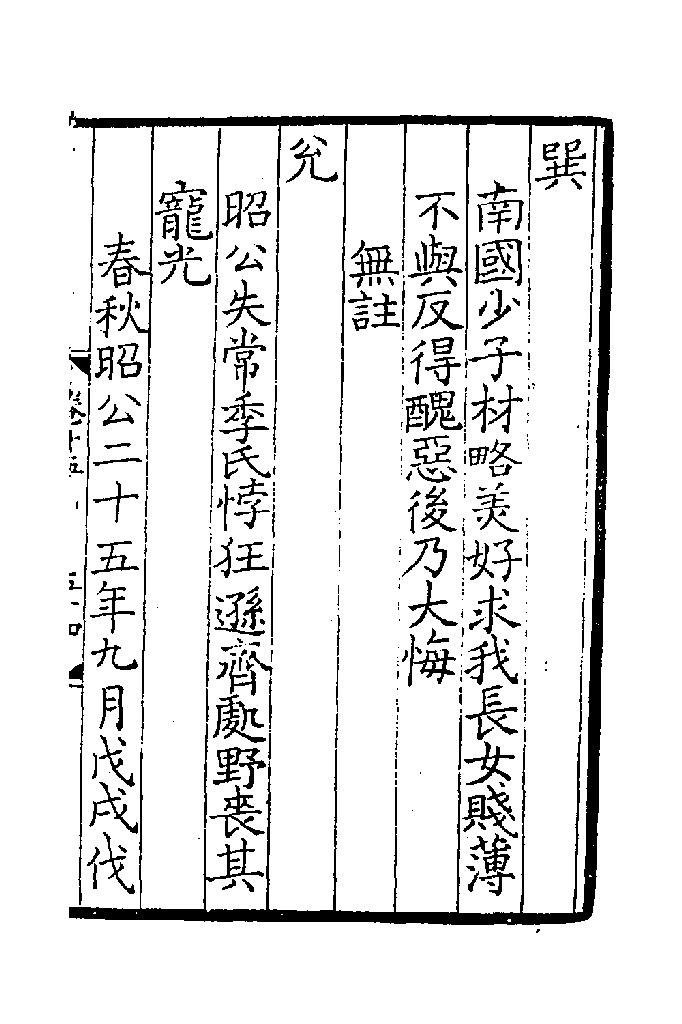 巽
南國少子材略美好求我長女賤薄
不與反得醜惡後乃大悔
無註
兊
昭公失常季氏悖狂遜齊處野喪其
寵光
春秋昭公二十五年九月戊戌伐
卷十五